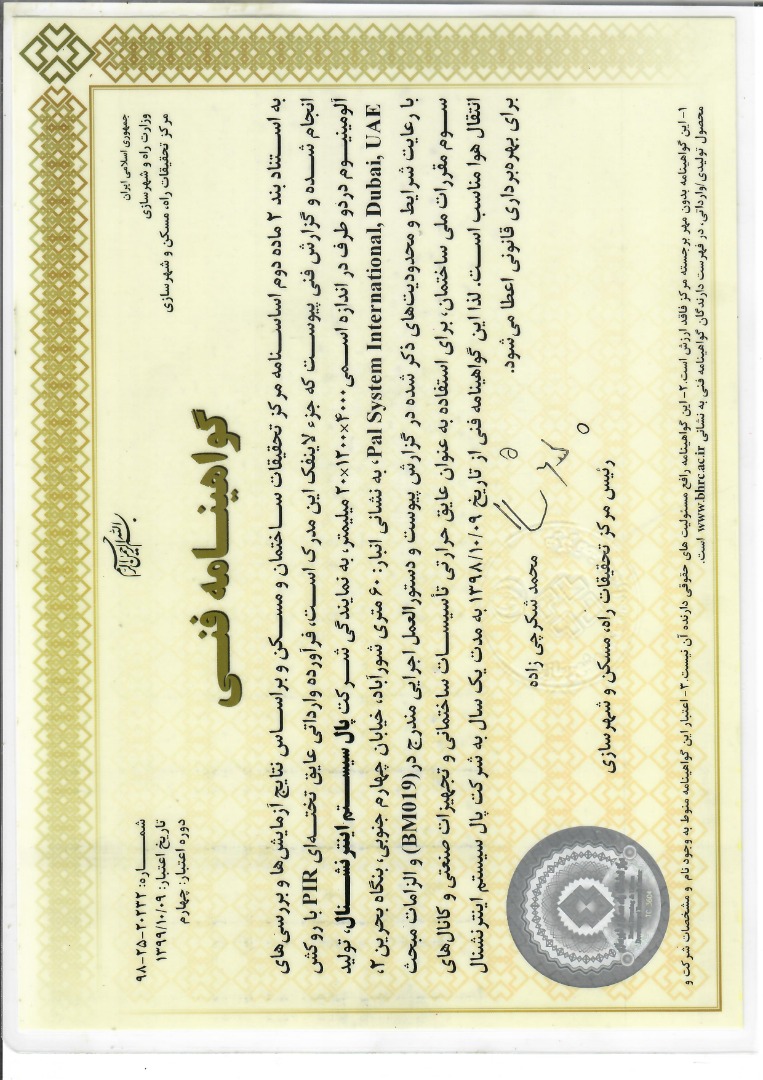 بسم الله الرحمن الرحیم
جمهوری اسلامی ایران
وزارت راه و شهرسازی
مرکز تحقیقات راه، مسکن و شهرسازی
شماره: ۹۸-۲۵-۲۰۲۳۲
تاریخ اعتبار: ۱۳۹۹/۱۰/۰۹
دوره اعتبار: چهارم
گواهینامه فنی
به استناد بند ۲ ماده دوم اساسنامه مرکز تحقیقات ساختمان و مسکن و براساس نتایج آزمایش‌ها و بررسی‌های
انجام شده و گزارش فنی پیوست که جزء لاینفک این مدرک است، فرآورده وارداتی عایق تخته‌ای PIR با روکش
آلومینیوم دردو طرف در اندازه اسمی ۴۰۰۰×۱۲۰۰×۲۰ میلیمتر، به نمایندگی شرکت پال سیستم اینترنشنال، تولید
Pal System International, Dubai, UAE، به نشانی انبار: ۶۰ متری شورآباد، خیابان چهارم جنوبی، بنگاه بحرین ۲،
با رعایت شرایط و محدودیت‌های ذکر شده در گزارش پیوست و دستورالعمل اجرایی مندرج در(BM019) و الزامات مبحث
سوم مقررات ملی ساختمان، برای استفاده به عنوان عایق حرارتی تأسیسات ساختمانی و تجهیزات صنعتی و کانال‌های
انتقال هوا مناسب است. لذا این گواهینامه فنی از تاریخ ۱۳۹۸/۱۰/۰۹ به مدت یک سال به شرکت پال سیستم اینترنشنال
برای بهره‌برداری قانونی اعطا می‌شود.
محمد شکرچی زاده
رئیس مرکز تحقیقات راه، مسکن و شهرسازی
۱- این گواهینامه بدون مهر برجسته مرکز فاقد ارزش است. ۲- این گواهینامه رافع مسئولیت های حقوقی دارنده آن نیست. ۳- اعتبار این گواهینامه منوط به وجود نام و مشخصات شرکت و
محصول تولیدی/وارداتی، در فهرست دارندگان گواهینامه فنی به نشانی www.bhrc.ac.ir است.